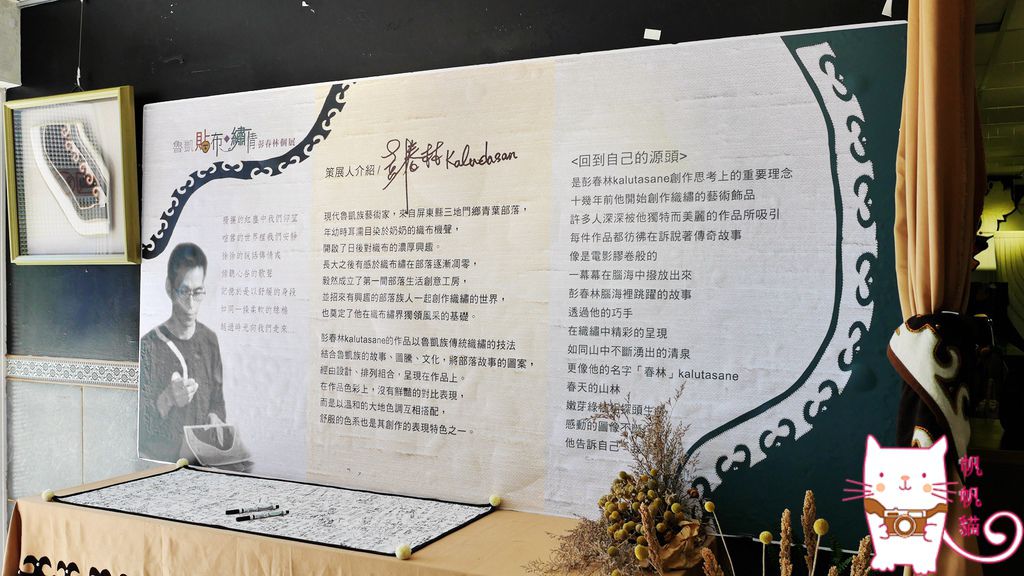 魯凱貼布·繡情 彭春林個展
飛揚的紅塵中我們仰望
喧囂的世界裡我們安靜
徐徐的說話傳情成
傾聽心谷的歌聲
記憶於是以舒緩的身段
如同一條柔軟的絲棉
越過時光向我們走來
策展人介紹/彭春林Kaludasan
現代魯凱族藝術家，來自屏東縣三地門鄉青葉部落，
年幼時耳濡目染於奶奶的織布機聲，
開啟了日後對織布的濃厚興趣。
長大之後有感於織布繡在部落逐漸凋零，
毅然成立了第一間部落生活創意工房，
並招來有興趣的部落族人一起創作織繡的世界，
也奠定了他在織布繡界獨領風采的基礎。
彭春林kalutasane的作品以魯凱族傳統織繡的技法
結合魯凱族的故事、圖騰、文化，將部落故事的圖案，
經由設計、排列組合，呈現在作品上。
在作品色彩上，沒有鮮豔的對比表現，
而是以溫和的大地色調互相搭配，
舒服的色系也是其創作的表現特色之一。
<回到自己的源頭>
是彭春林kalutasane創作思考上的重要理念
十幾年前他開始創作織繡的藝術飾品
許多人深深被他獨特而美麗的作品所吸引
每件作品都彷彿在訴說著傳奇故事
像是電影膠卷般的
一幕幕在腦海中撥放出來
彭春林腦海裡跳躍的故事
透過他的巧手
在織繡中精彩的呈現
如同山中不斷湧出的清泉
更像他的名字「春林」kalutasane
春天的山林
嫩芽綠枝蝴蝶探頭生
感動的圖像不斷
他告訴自己
帆帆貓